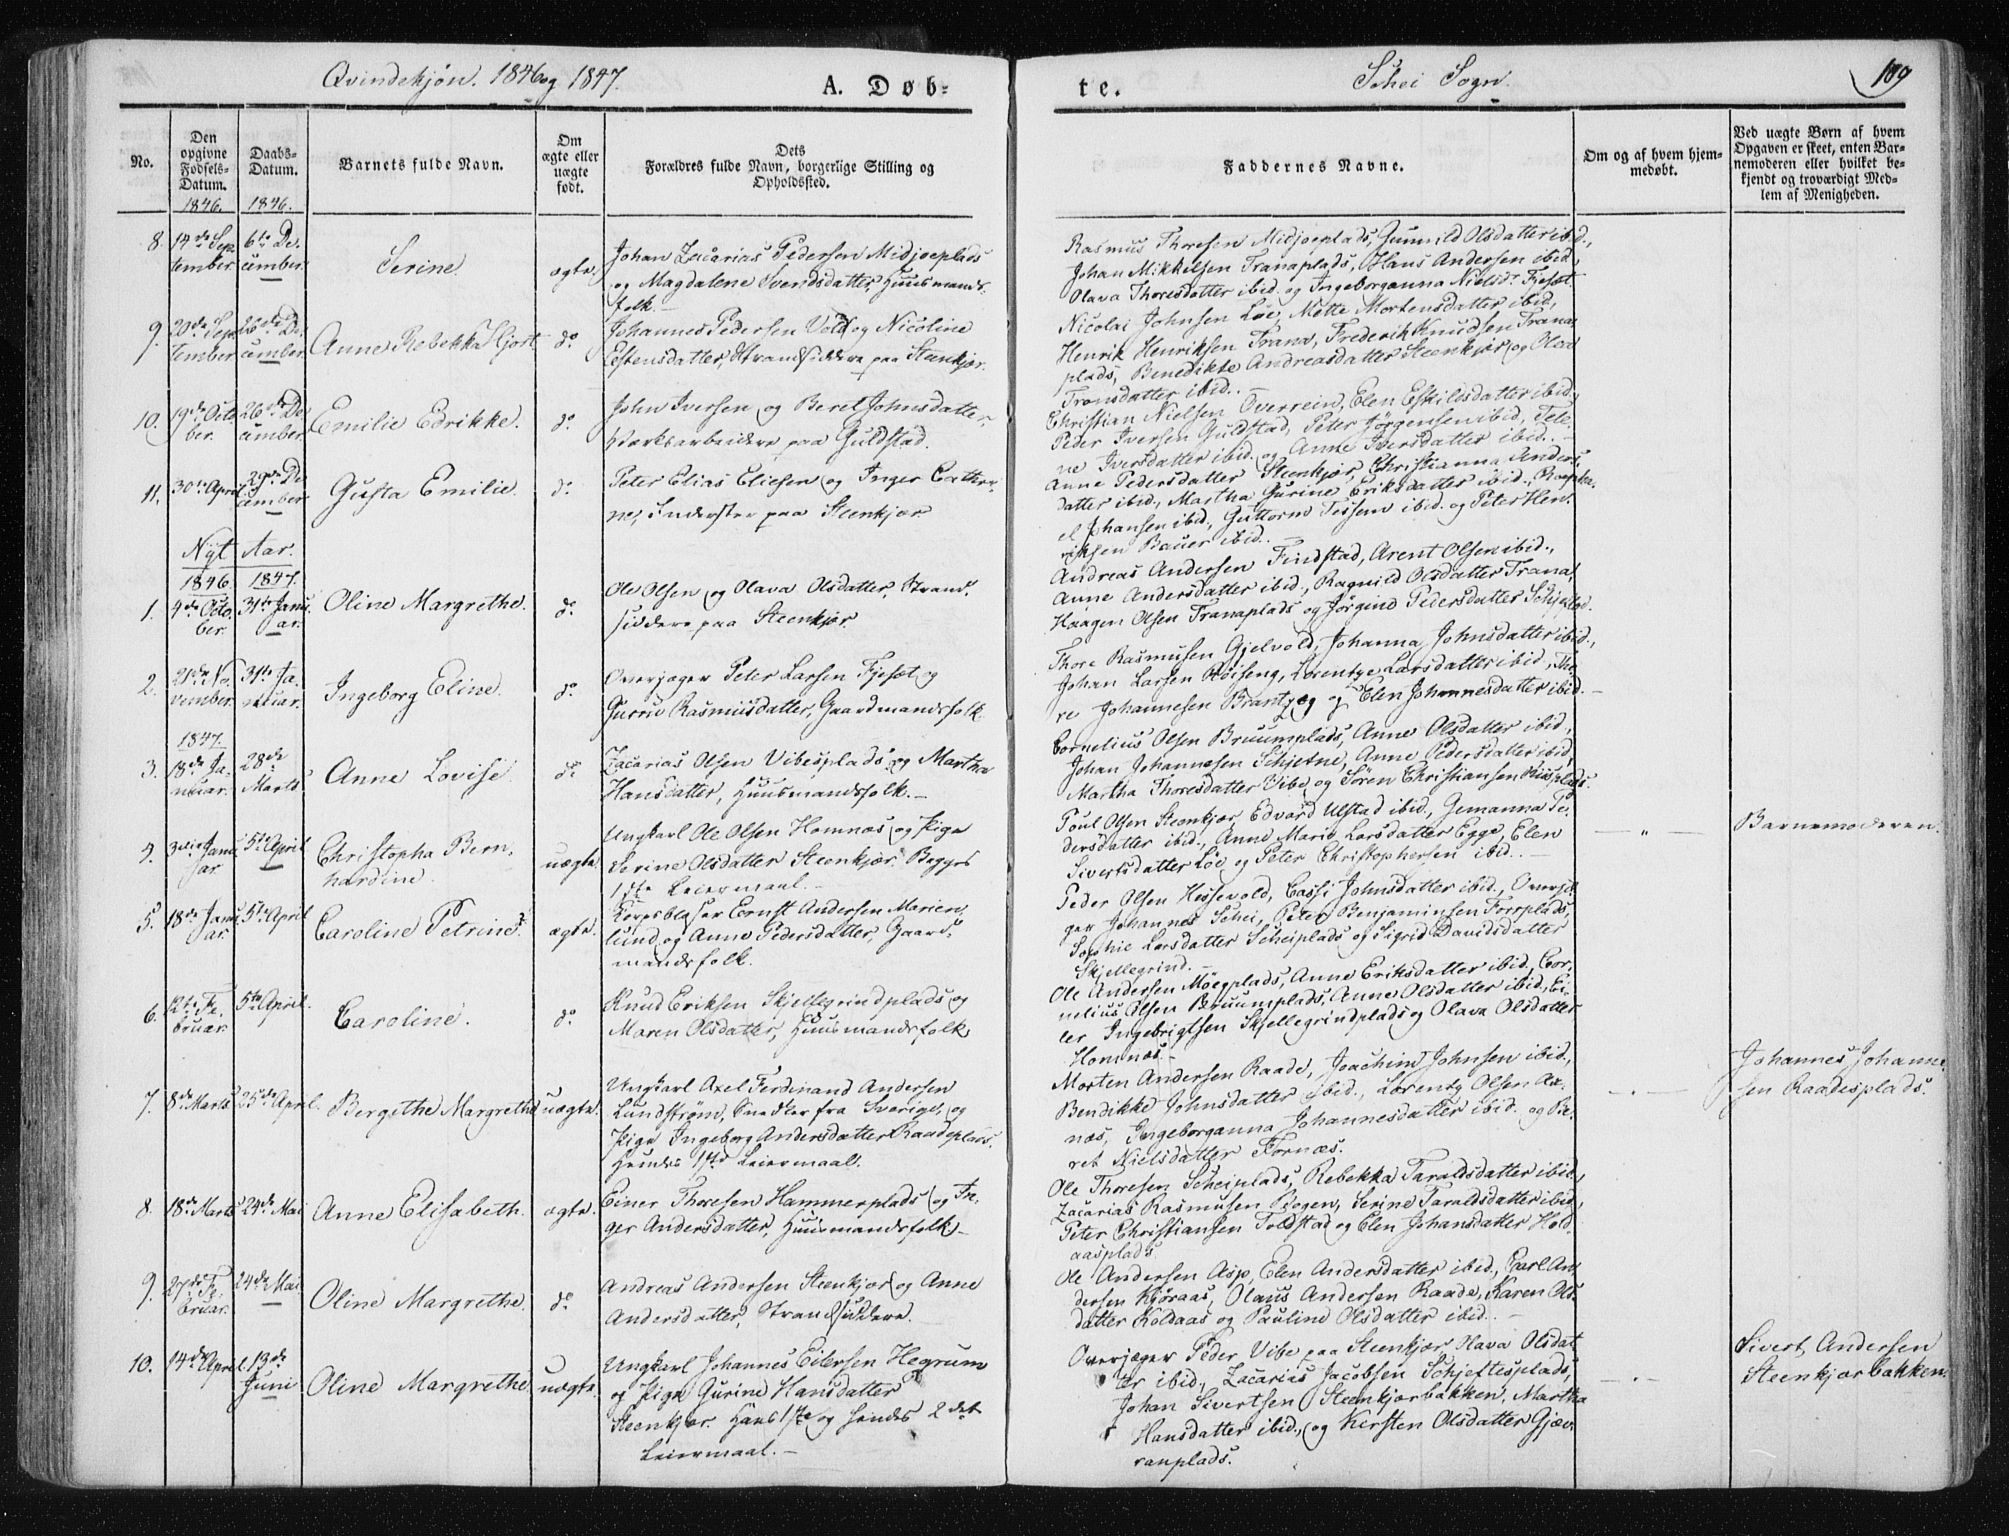 Qvindekjøn. 1846 og 1847.
A. Døb-
te.
Schei Sogn.
109
No.
Den opgivne Fødsels-Datum.
Daabs-Datum.
Barnets fulde Navn.
Om ægte eller uægte født.
Dets Forældres fulde Navn, borgerlige Stilling og Opholdssted.
Faddernes Navne.
Om og af hvem hjemmedøbt.
Ved uægte Børn af hvem Opgaven er skeet, enten Barnemoderen eller hvilket bekjendt og troværdigt Medlem af Menigheden.
1846. 1846.
8. 14de September 6te December Serine ægte.
Johan Zacarias Pedersen Midjoeplads
og Magdalene Svendsdatter, Huusmands-
folk.
Rasmus Thoresen Midjoeplads, Gunnild Olsdatter ibid.,
Johan Mikkelsen Tranaplads, Hans Andersen ibid.,
Olava Thoresdatter ibid. og Ingeborganna Nielsdr. Fjesæt.
9. 20de September 26de December Anne Rebekka Hjort do
Johannes Pedersen Vold og Nicoline
Estensdatter, Strandsiddere paa Steenkjær.
Nicolai Johnsen Løe, Mette Mortensdatter ibid,
Henrik Henriksen Trana, Frederik Knudsen Trana-
plads, Benedikte Andreasdatter Steenkjær og Olava
Tronsdatter ibid.
10. 19de October 26de December Emilie Edrikke. do
John Iversen og Beret Johnsdatter,
Værksarbeidere paa Guldstad.
Christian Nielsen Overrein, Elen Eskildsdatter ibid.,
Peder Iversen Guldstad, Peter Jørgensen ibid, Tele-
ne Iversdatter ibid. og Anne Iversdatter ibid.
11. 30te April 29de December Gusta Emilie. do
Peter Elias Eliesen og Inger Cathri-
ne, Inderster paa Steenkjær
Anne Pedersdatter Steenkjær, Christianna Anders-
datter ibid., Martha Gurine Eriksdatter ibid., Raepha-
el Johansen ibid, Guttorm Tessem ibid. og Peter Hen-
riksen Bauer ibid.
Nyt Aar.
1846 1847.
1. 4de October. 31te Januar. Oline Margrethe. do
Ole Olsen og Olava Olsdatter, Strand-
siddere paa Steenkjær
Andreas Andersen Findstad, Arent Olsen ibid.,
Anne Andersdatter ibid., Ragnild Olsdatter Trana,
Haagen Olsen Tranaplads og Jørgine Pedersdatter
2. 21de November. 31te Januar. Ingeborg Eline. do
Overjæger Peter Larsen Fjesæt og
Gurrie Rasmusdatter, Gaardmandsfolk.
Thore Rasmusen Gjelvold, Johanna Johnsdatter ibid.,
Johan Larsen Høiseng, Lorentze Larsdatter ibid., Tho-
re Johannesen Brantzeg og Elen Johannesdatter ibid.
1847.
3. 18de Januar. 28de Marts Anne Lovise do
Zacarias Olsen Vibesplads og Martha
Hansdatter, Huusmandsfolk.
Cornelius Olsen Bruumplads, Anne Olsdatter ibid.,
Johan Johannesen Schjetne, Anne Pedersdatter ibid,
Martha Thoresdatter Vibe og Sören Christiansen
4. 3die Januar 5te April Christopha Bernhardine. uægte.
Ungkarl Ole Olsen Homnæs og Pige
Serine Olsdatter Steenkjær. Begges
1ste Leiermaal.
Poul Olsen Steenkjær, Edvard Ulstad ibid., Gemanna Pe-
dersdatter ibid., Anne Marie Larsdatter Egge, Elen
Sivertsdatter Løe og Peter Christophersen ibid.
" Barnemoderen.
5. 18de Januar. 5te April Caroline Petrine. ægte.
Korpsblaser Ernst Andersen Marien-
lund og Anne Pedersdatter, Gaard-
mandsfolk.
Peder Olsen Hegsvold, Cassi Johnsdatter ibid., Overjæ-
ger Johannes Schei, Peter Benjaminsen Forrplads,
Sophie Larsdatter Scheiplads og Sigrid Davidsdatter
Skjellegrind.
6. 12te Februar. 5te April. Caroline. do
Knud Eriksen Skjellegrindplads og
Maren Olsdatter, Huusmandsfolk
Ole Andersen Möegplads, Anne Eriksdatter ibid., Cor-
nelius Olsen Bruumplads, Anne Olsdatter ibid., Ei-
ler Ingebrigtsen Skjellegrindplads og Olava Olsdatter
Homnæs.
7. 8de Marts 25de April. Bergithe Margrethe uægte.
Ungkarl Axel Ferdinand Andersen
Lundstrøm, Snedker fra Sverige, og
Pige Ingeborg Andersdatter Raadeplads.
Hendes 1ste Leiermaal.
Morten Andersen Raade, Joachim Johnsen ibid.,
Bendikke Johnsdatter ibid., Lorentz Olsen Ax-
næs, Ingeborganna Johannesdatter ibid. og Be-
ret Nielsdatter Fornæs.
Johannes Johanne-
sen Raadesplads.
8. 18de Marts 24de Mai Anne Elisabeth. ægte.
Einer Thoresen Hammerplads og In-
ger Andersdatter, Huusmandsfolk
Ole Thoresen Scheiplads, Rebekka Taraldsdatter ibid.,
Zacarias Rasmusen Bogen, Serine Taraldsdatter ibid.,
Peter Christiansen Toldstad og Elen Johansdatter Hold-
aasplads
9. 27de Februar. 24de Mai Oline Margrethe. do
Andreas Andersen Steenkjær og Anne
Andersdatter, Strandsiddere.
Ole Andersen Asp, Elen Andersdatter ibid., Carl An-
dersen Kjøraas, Olaus Andersen Raade, Karen Ols-
datter Koldaas og Pauline Olsdatter ibid.
10. 14de April. 13de Juni Oline Margrethe uægte.
Ungkarl Johannes Eilersen Hegrum
og Pige Gurine Hansdatter
Steenkjær. Hans 1ste og hendes 2det
Leiermaal.
Overjæger Peder Vibe paa Steenkjær, Olava Olsdat-
ter ibid., Zacarias Jacobsen Schjeftesplads,
Johan Sivertsen Steenkjærbakken, Martha
Hansdatter ibid., og Kirsten Olsdatter Gjæv-
ranplads.
Sivert Andersen
Steenkjærbakken.